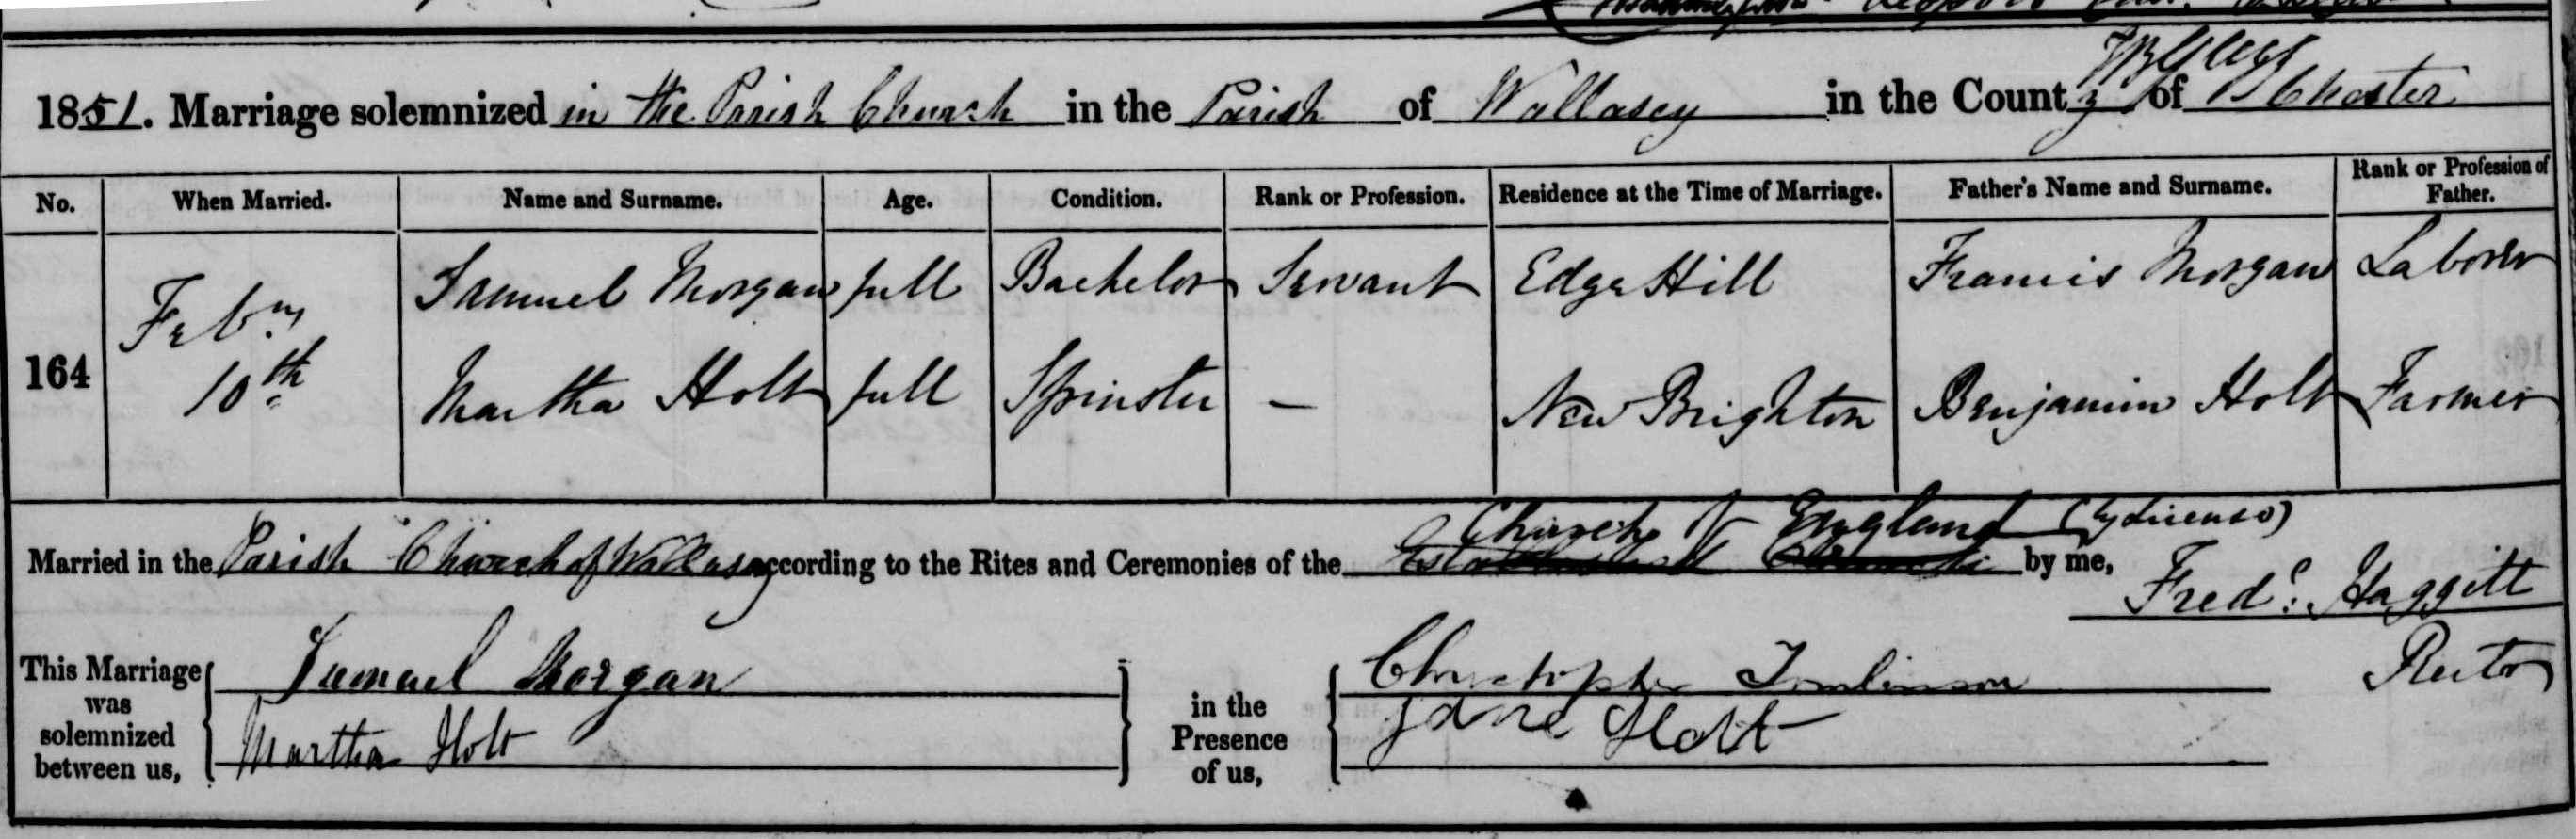 1851. Marriage solemnized in the Parish Church in the Parish of Wallasey in the County of Chester
No. When Married. Name and Surname. Age. Condition. Rank or Profession. Residence at the Time of Marriage. Father's Name and Surname. Rank or Profession of Father.
164 Feby 10th Samuel Morgan full Bachelor Servant Edge Hill Francis Morgan Laborer
Martha Holt full Spinster - New Brighton Benjamin Holt Farmer
Church of England (by license)
Married in the Parish Church of Wallasey according to the Rites and Ceremonies of the Established Church by me,
Fredc. Haggitt
Rector
This Marriage was solemnized between us, Samuel Morgan in the Presence of us, Christopher Tomlinson
Martha Holt Jane Holt